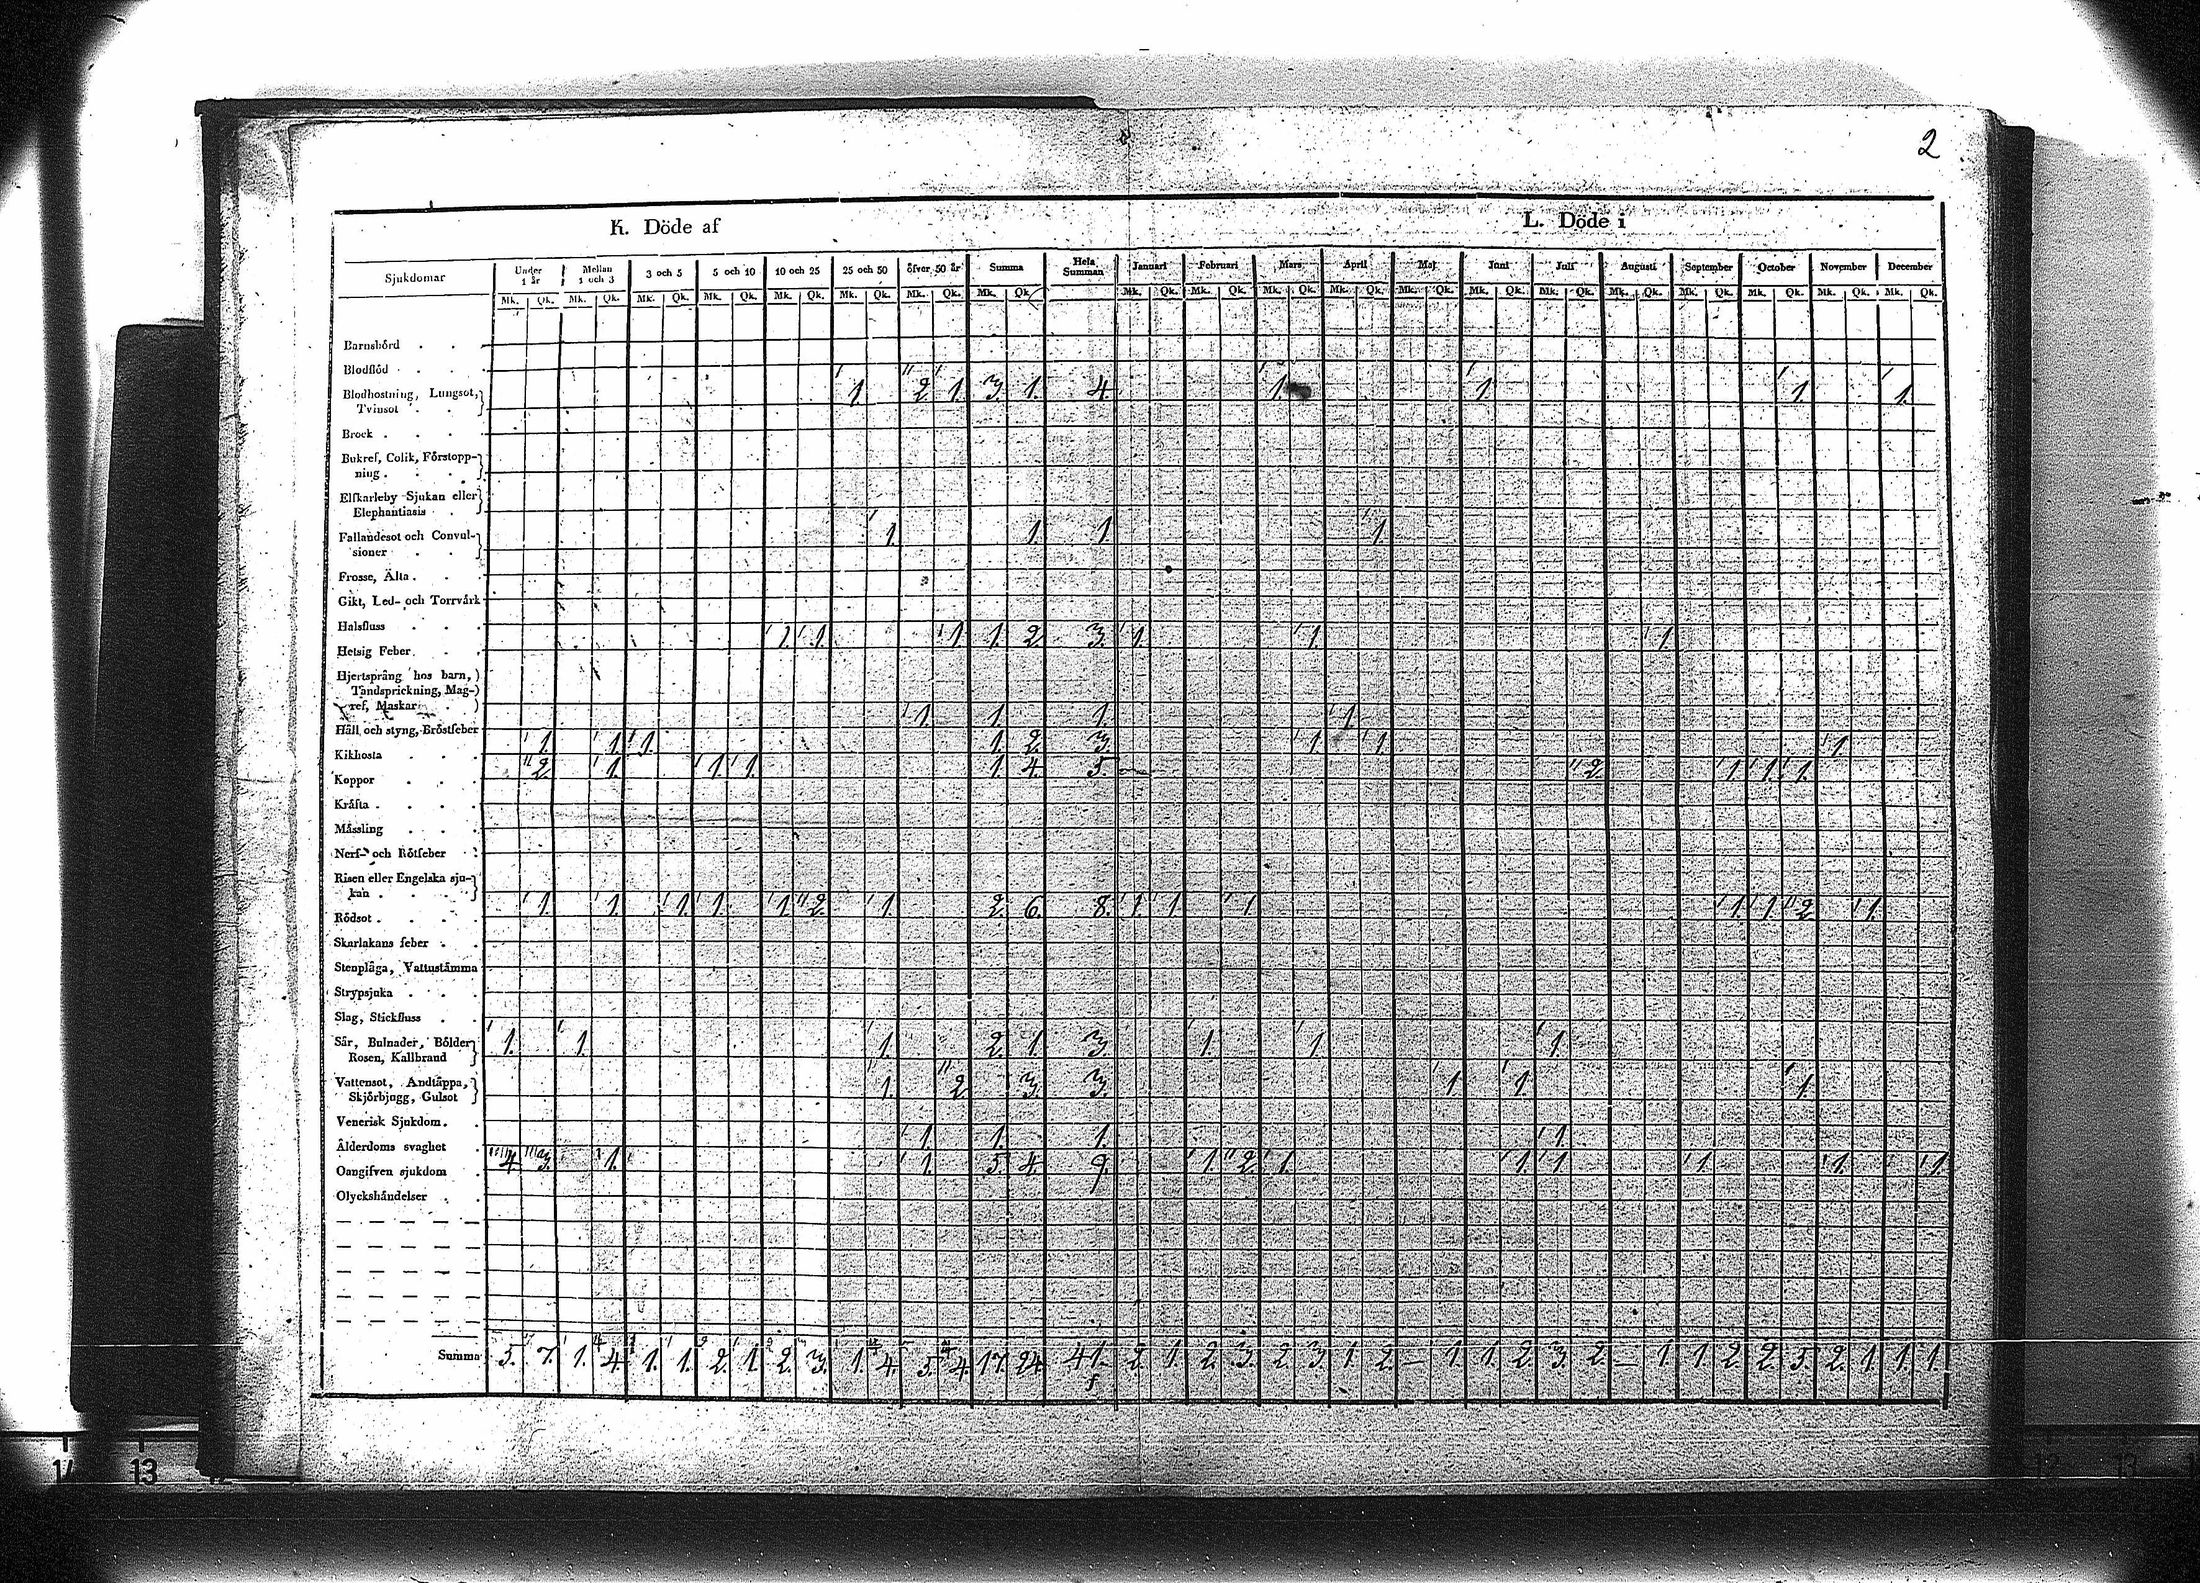 2
K. Döde af L. Döde i
Sjukdomar Under 1 år Mellan 1 och 3 3 och 5 5 och 10 10 och 25 25 och 50 öfver 50 år Summa Hela Summan Januari Februari Mars April Maj Juni Juli Augusti September October November December
Mk. Qk. Mk. Qk. Mk. Qk. Mk. Qk. Mk. Qk. Mk. Qk. Mk. Qk. Mk. Qk. Mk. Qk. Mk. Qk. Mk. Qk. Mk. Qk. Mk. Qk. Mk. Qk. Mk. Qk. Mk. Qk. Mk. Qk. Mk. Qk. Mk. Qk. Mk. Qk.
Barnsbörd
Blodflöd
Blodhostning, Lungsot, 1. 2. 1. 3. 1. 4. 1. 1. 1. 1.
Tvinsot
Brock
Bukref, Colik, Förstopp-
ning
Elfkarleby Sjukan eller
Elephantiasis
Fallandesot och Convul- 1. 1. 1. 1.
sioner
Frosse, Älta
Gikt, Led- och Torrvärk
Halsfluss
Hetsig Feber 1. 1. 1. 1. 2. 3. 1. 1. 1.
Hjertsprång hos barn,
Tandsprickning, Mag-
ref, Maskar
Håll och styng, Bröstfeber 1. 1. 1. 1.
Kikhosta 1. 1. 1. 1. 2. 3. 1. 1. 1.
Koppor 2. 1. 1. 1. 1. 4. 5. 2. 1. 1. 1.
Kräfta
Mässling
Nerf- och Rötfeber
Risen eller Engelska sju-
kan
Rödsot 1. 1. 1. 1. 1. 2. 1. 2. 6. 8. 1. 1. 1. 1. 1. 2. 1.
Skarlakans feber
Stenplåga, Vattustämma
Strypsjuka
Slag, Stickfluss
Sår, Bulnader, Bölder 1. 1. 1. 2. 1. 3. 1. 1. 1.
Rosen, Kallbrand
Vattensot, Andtäppa, 1. 2. 3. 3. 1. 1. 1.
Skjörbjugg, Gulsot
Venerisk Sjukdom
Ålderdoms svaghet 1. 1. 1. 1.
Oangifven sjukdom 4. 3. 1. 1. 5. 4. 9. 1. 2. 1. 1. 1. 1. 1. 1.
Olyckshändelser
Summa 5. 7. 1. 4. 1. 1. 2. 1. 2. 3. 1. 4. 5. 4. 17. 24. 41. 2. 1. 2. 3. 2. 3. 1. 2. — 1. 1. 2. 3. 2. — 1. 1. 2. 2. 5. 2. 1. 1. 1.
13
12 13